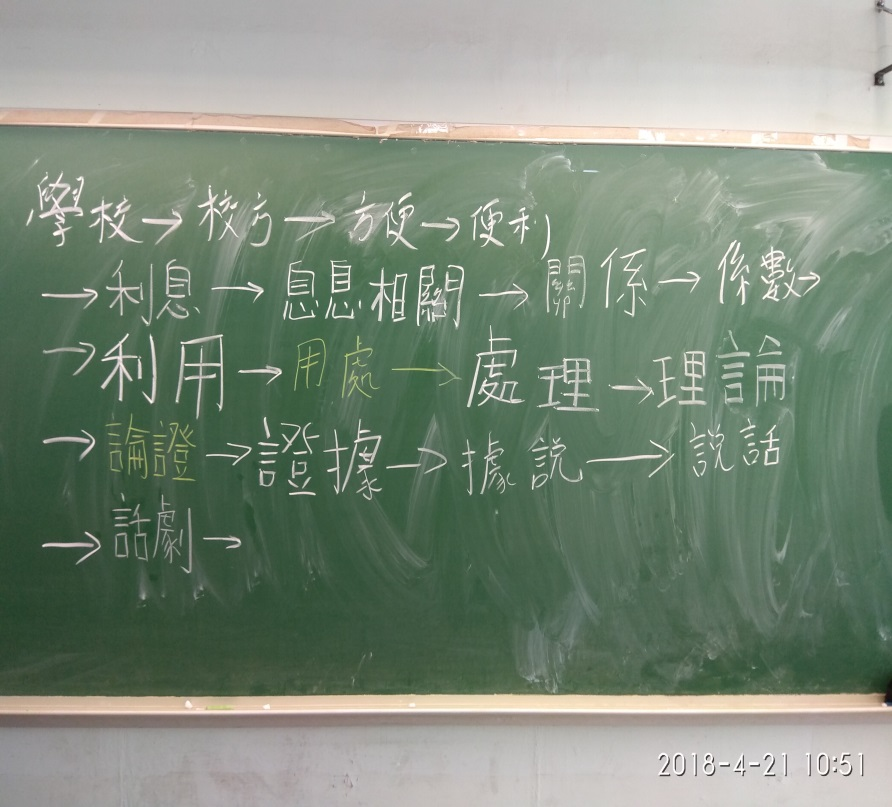 學校→校方→方便→便利
→利息→息息相關→關係→係數→
→利用→用處→處理→理論
→論證→證據→據説→説話
→話劇→
2018-4-21 10:51